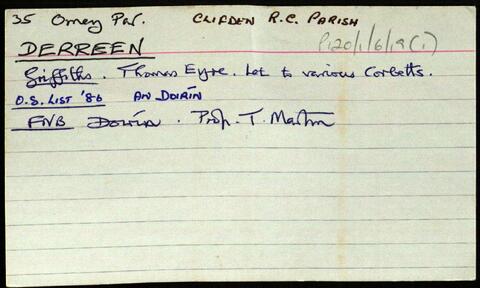 35 Omey Par. CLIFDEN R.C. PARISH
P120/1/6/19(1)
DERREEN
Griffiths. Thomas Eyre. Let to various Corbetts.
O.S. LIST '86 AN DOIRÍN
FNB Doirín. Prop. T. Martin